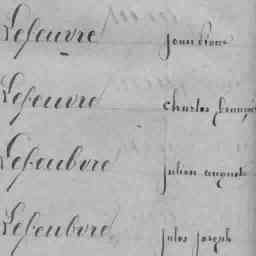 Lefeuvre Jean Pierre
Lefeuvre charles françois
Lefeubvre julien auguste
Lefeubvre jules joseph